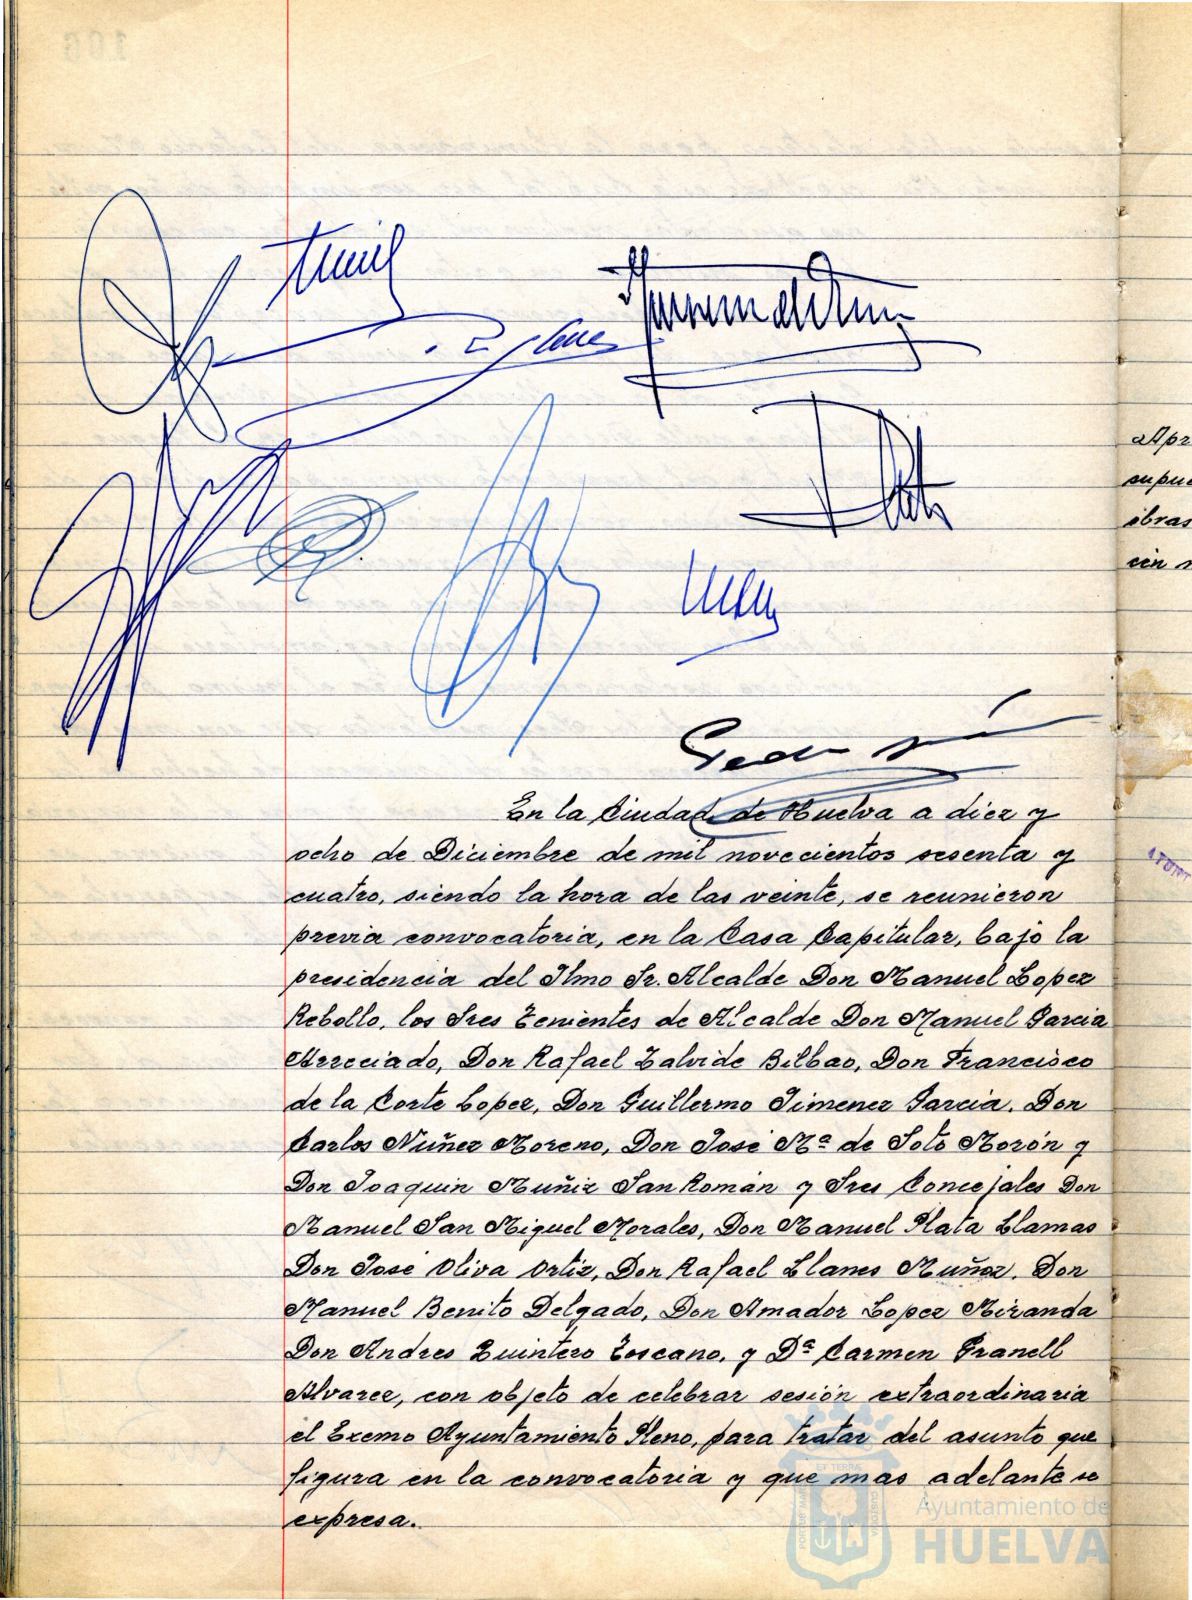 En la Ciudad de Huelva a diez y
ocho de Diciembre de mil novecientos sesenta y
cuatro, siendo la hora de las veinte, se reunieron
previa convocatoria, en la Casa Capitular, bajo la
presidencia del Ilmo Sr. Alcalde Don Manuel Lopez
Rebollo, los Sres Tenientes de Alcalde Don Manuel Garcia
Arreciado, Don Rafael Zalvide Bilbao, Don Francisco
de la Corte Lopez, Don Guillermo Jimenez Garcia. Don
Carlos Nuñez Moreno, Don José Mª de Soto Morón y
Don Joaquin Muñiz San Román y Sres Concejales Don
Manuel San Miguel Morales, Don Manuel Plata Llamas
Don José Oliva Ortiz, Don Rafael Llanes Muñoz. Don
Manuel Benito Delgado, Don Amador Lopez Miranda
Don Andres Quintero Toscano, y Dª Carmen Granell
Alvarez, con objeto de celebrar sesión extraordinaria
el Excmo Ayuntamiento Pleno, para tratar del asunto que
figura en la convocatoria y que mas adelante se
expresa.
Apr
supue
obras
cin
Ayuntamiento de
HUELVA